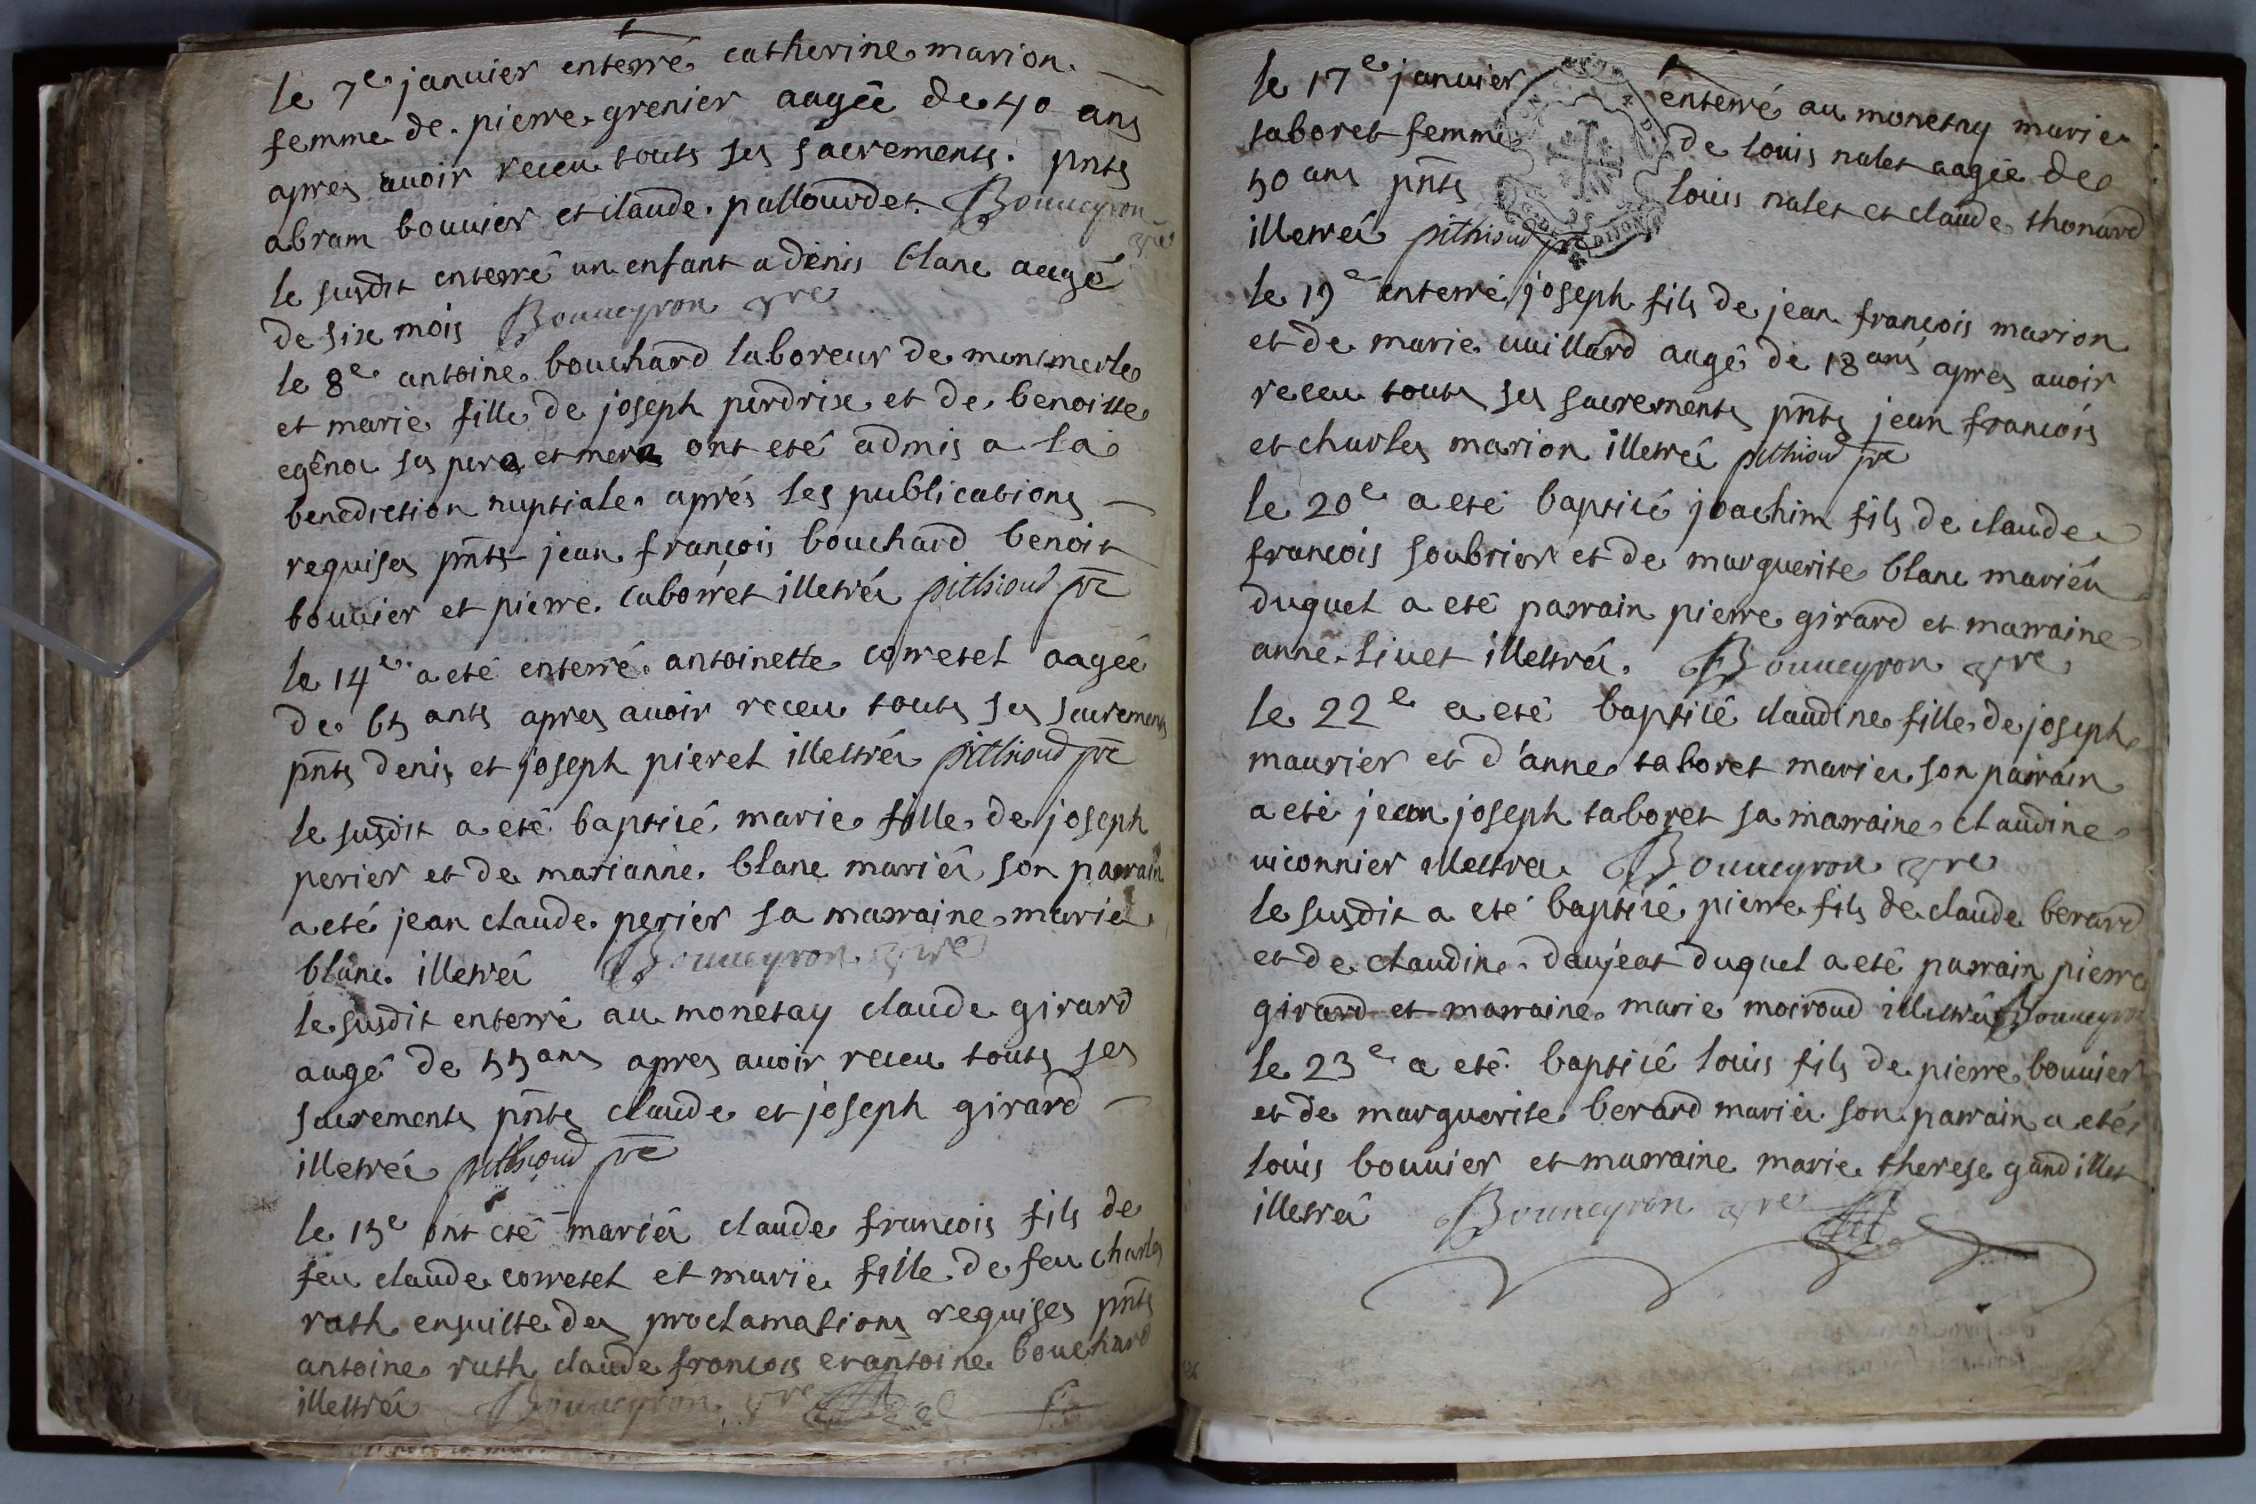 le 7e januier enterré catherine marion
femme de pierre grenier aagée de 40 ans
apres auoir receu touts ses sacrements. pnts
abram bouuier et claude pallourdet. Bouueyron pre
le susdit enterré un enfant a denis blanc aagé
de six mois Bouueyron pre
le 8e antoine bouchard laboreur de montmerle
et marie fille de joseph perdrix et de benoitte
ses pere et mere ont eté admis a la
benediction nuptiale aprés les publications
requises pnts jean francois bouchard benoit
bouuier et pierre caborret illetrés pithioud pre
le 14e a eté enterré antoinette corretel aagée
de 65 ants apres auoir receu touts ses sacrements
pnts denis et joseph pieret illettrés pithioud pre
le susdit a eté baptisé marie fille de joseph
perier et de marianne blanc mariés son parrain
a eté jean claude perier sa marraine marie
blanc illetrés Bouueyron pre
le susdit enterré au monetay claude girard
aagé de 55 ans apres auoir receu touts ses
sacrements pnts claude et joseph girard
illetrés pithioud pre
le 15e ont eté mariés claude francois fils de
feu claude corretel et marie fille de feu charles
rath ensuitte des proclamations requises pnts
antoine ruth claude francois et antoine bouchard
illettrés Bouueyron pre
le 17e januier enterré au monetay marie
taboret femme de louis nalet aagée de
50 ans pnts louis nalet et claude thonard
illetrés pithioud pre
le 19e enterré joseph fils de jean francois marion
et de marie uuillard aagé de 18 ans apres auoir
receu touts ses sacrements pnts jean francois
et charles marion illetrés pithioud pre
le 20e a eté baptisé joachim fils de claude
francois soubrier et de marguerite blanc mariés
duquel a eté parrain pierre girard et marraine
anne liuet illettrés. Bouueyron pre
le 22e a eté baptisé claudine fille de joseph
maurier et d'anne taboret mariés son parrain
a eté jean joseph taboret sa marraine claudine
uiconnier illettrés Bouueyron pre
le susdit a eté baptisé pierre fils de claude berard
et de claudine daujeat duquel a eté parrain pierre
girard et marraine marie moiroud illettrés Bouueyron
le 23e a eté baptisé louis fils de pierre bouuier
et de marguerite berard mariés son parrain a eté
louis bouuier et marraine marie therese gandillet
illetrés Bouueyron pre